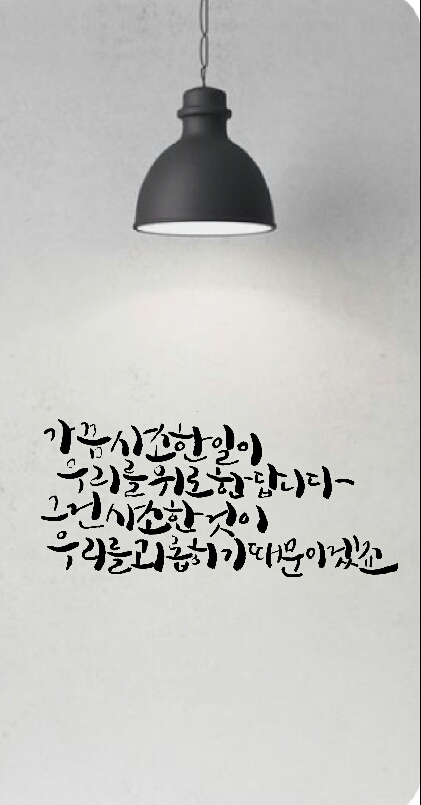 가끔 사소한 일이
우리를 위로한답니다~
그건 사소한 것이
우리를 괴롭히기 때문이겠죠